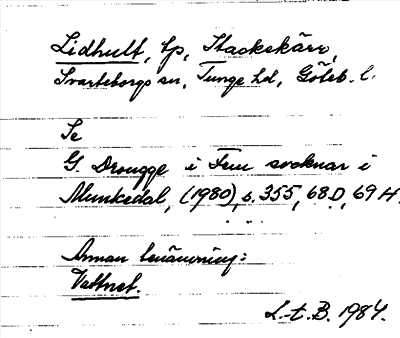 Lidhult, tp, Stackskärr,
Svarteborgs sn, Tunge hd, Göteb. l.
Se
G. Drougge i Fem socknar i
Munkedal, (1980), s. 355, 68D, 69H.
Annan benämning:
Vattnet.
L-t. B. 1984.